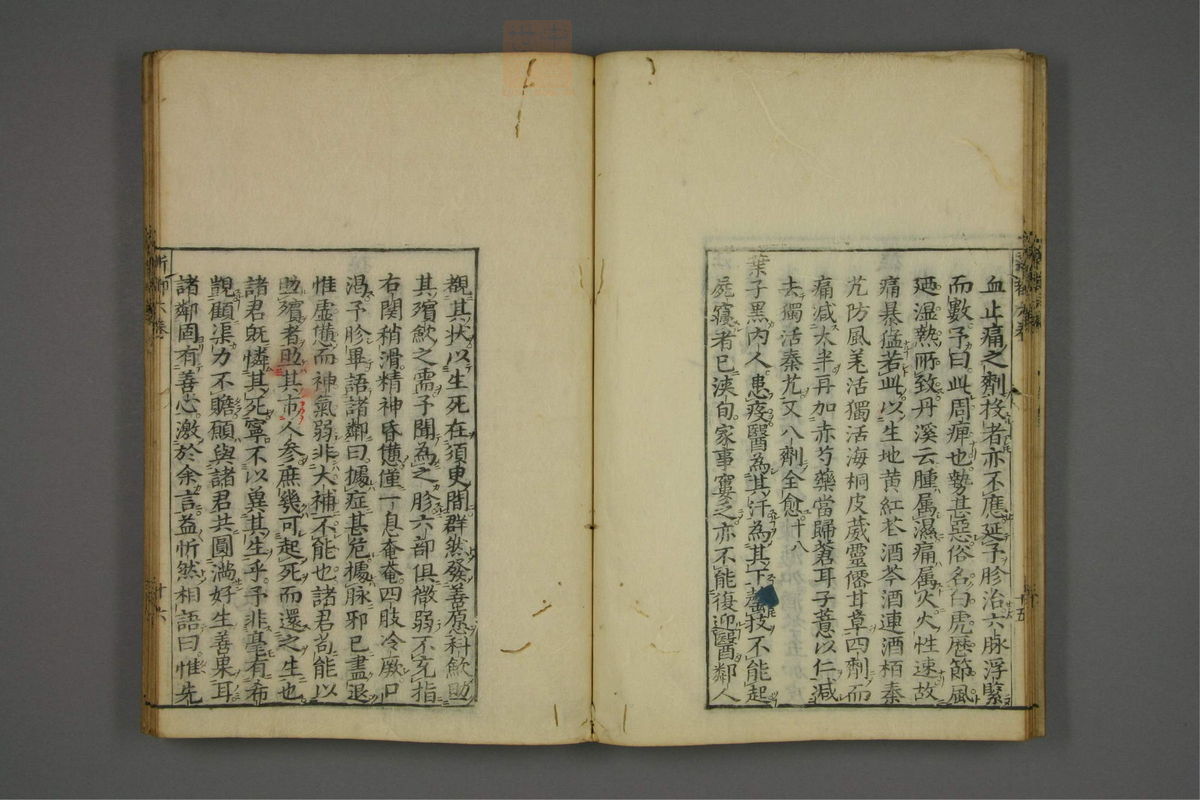 血止痛之劑投者亦不應延予胗治六脉浮緊
而數予曰此周痺也勢甚惡俗名白虎歷節風
廼湿熱所致丹溪云腫属濕痛属火火性速故
痛暴猛若此以生地黄紅花酒芩酒連酒栢秦
艽防風羌活獨活海桐皮葳靈僊甘草四劑而
痛减大半再加赤芍藥當歸蒼耳子薏以仁减
去獨活秦艽又八劑全愈十八
葉子黑内人患疫醫為其汗為其下醫技不能起
屍寢者已浹旬家事窶乏亦不能復迎醫鄰人
觀其状以生死在須臾間群然發善愿科歛助
其殯歛之需予聞為之胗六部俱微弱不充指
右関稍滑精神昏憊僅一息奄奄四肢冷厥口
渇予胗畢語諸鄰曰據症甚危據脉邪已盡退
惟虚憊而神氣弱非大補不能也諸君尚能以
助殯者助其市人参庶幾可起死而還之生也
諸君旣憐其死寧不以冀其生乎予非毫有希
覬顧渠力不贍願與諸君共圓満好生善果耳
諸鄰固有善心激於余言益忻然相語曰惟先